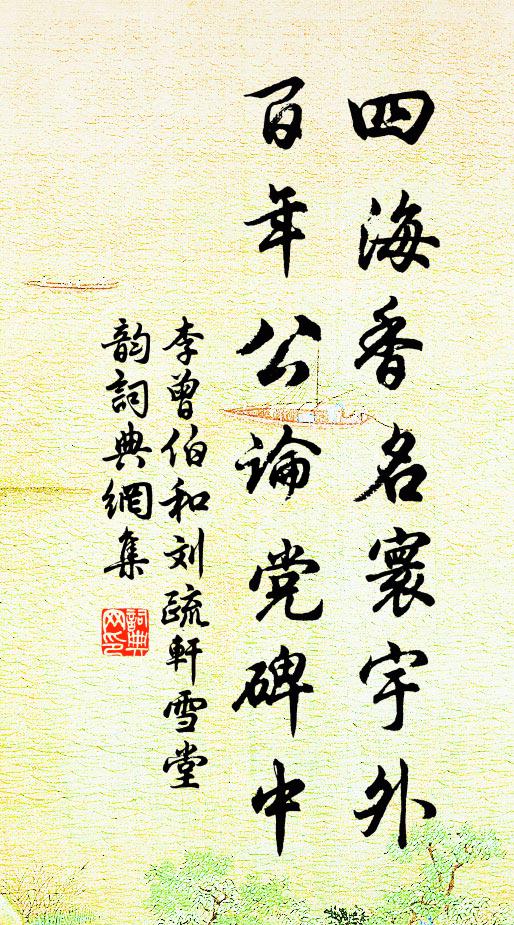 四海香名寰宇外
百年公論党碑中
李曾伯和刘疏軒雪堂
韵詞典網集
詞典网印